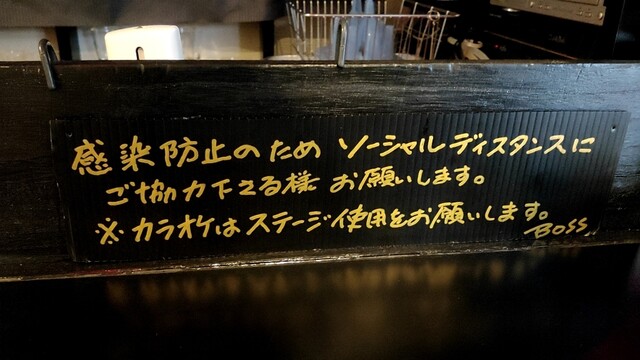 感染防止のため ソーシャルディスタンスに
ご協力下さる様 お願いします。
※カラオケはステージ使用をお願いします。
BOSS